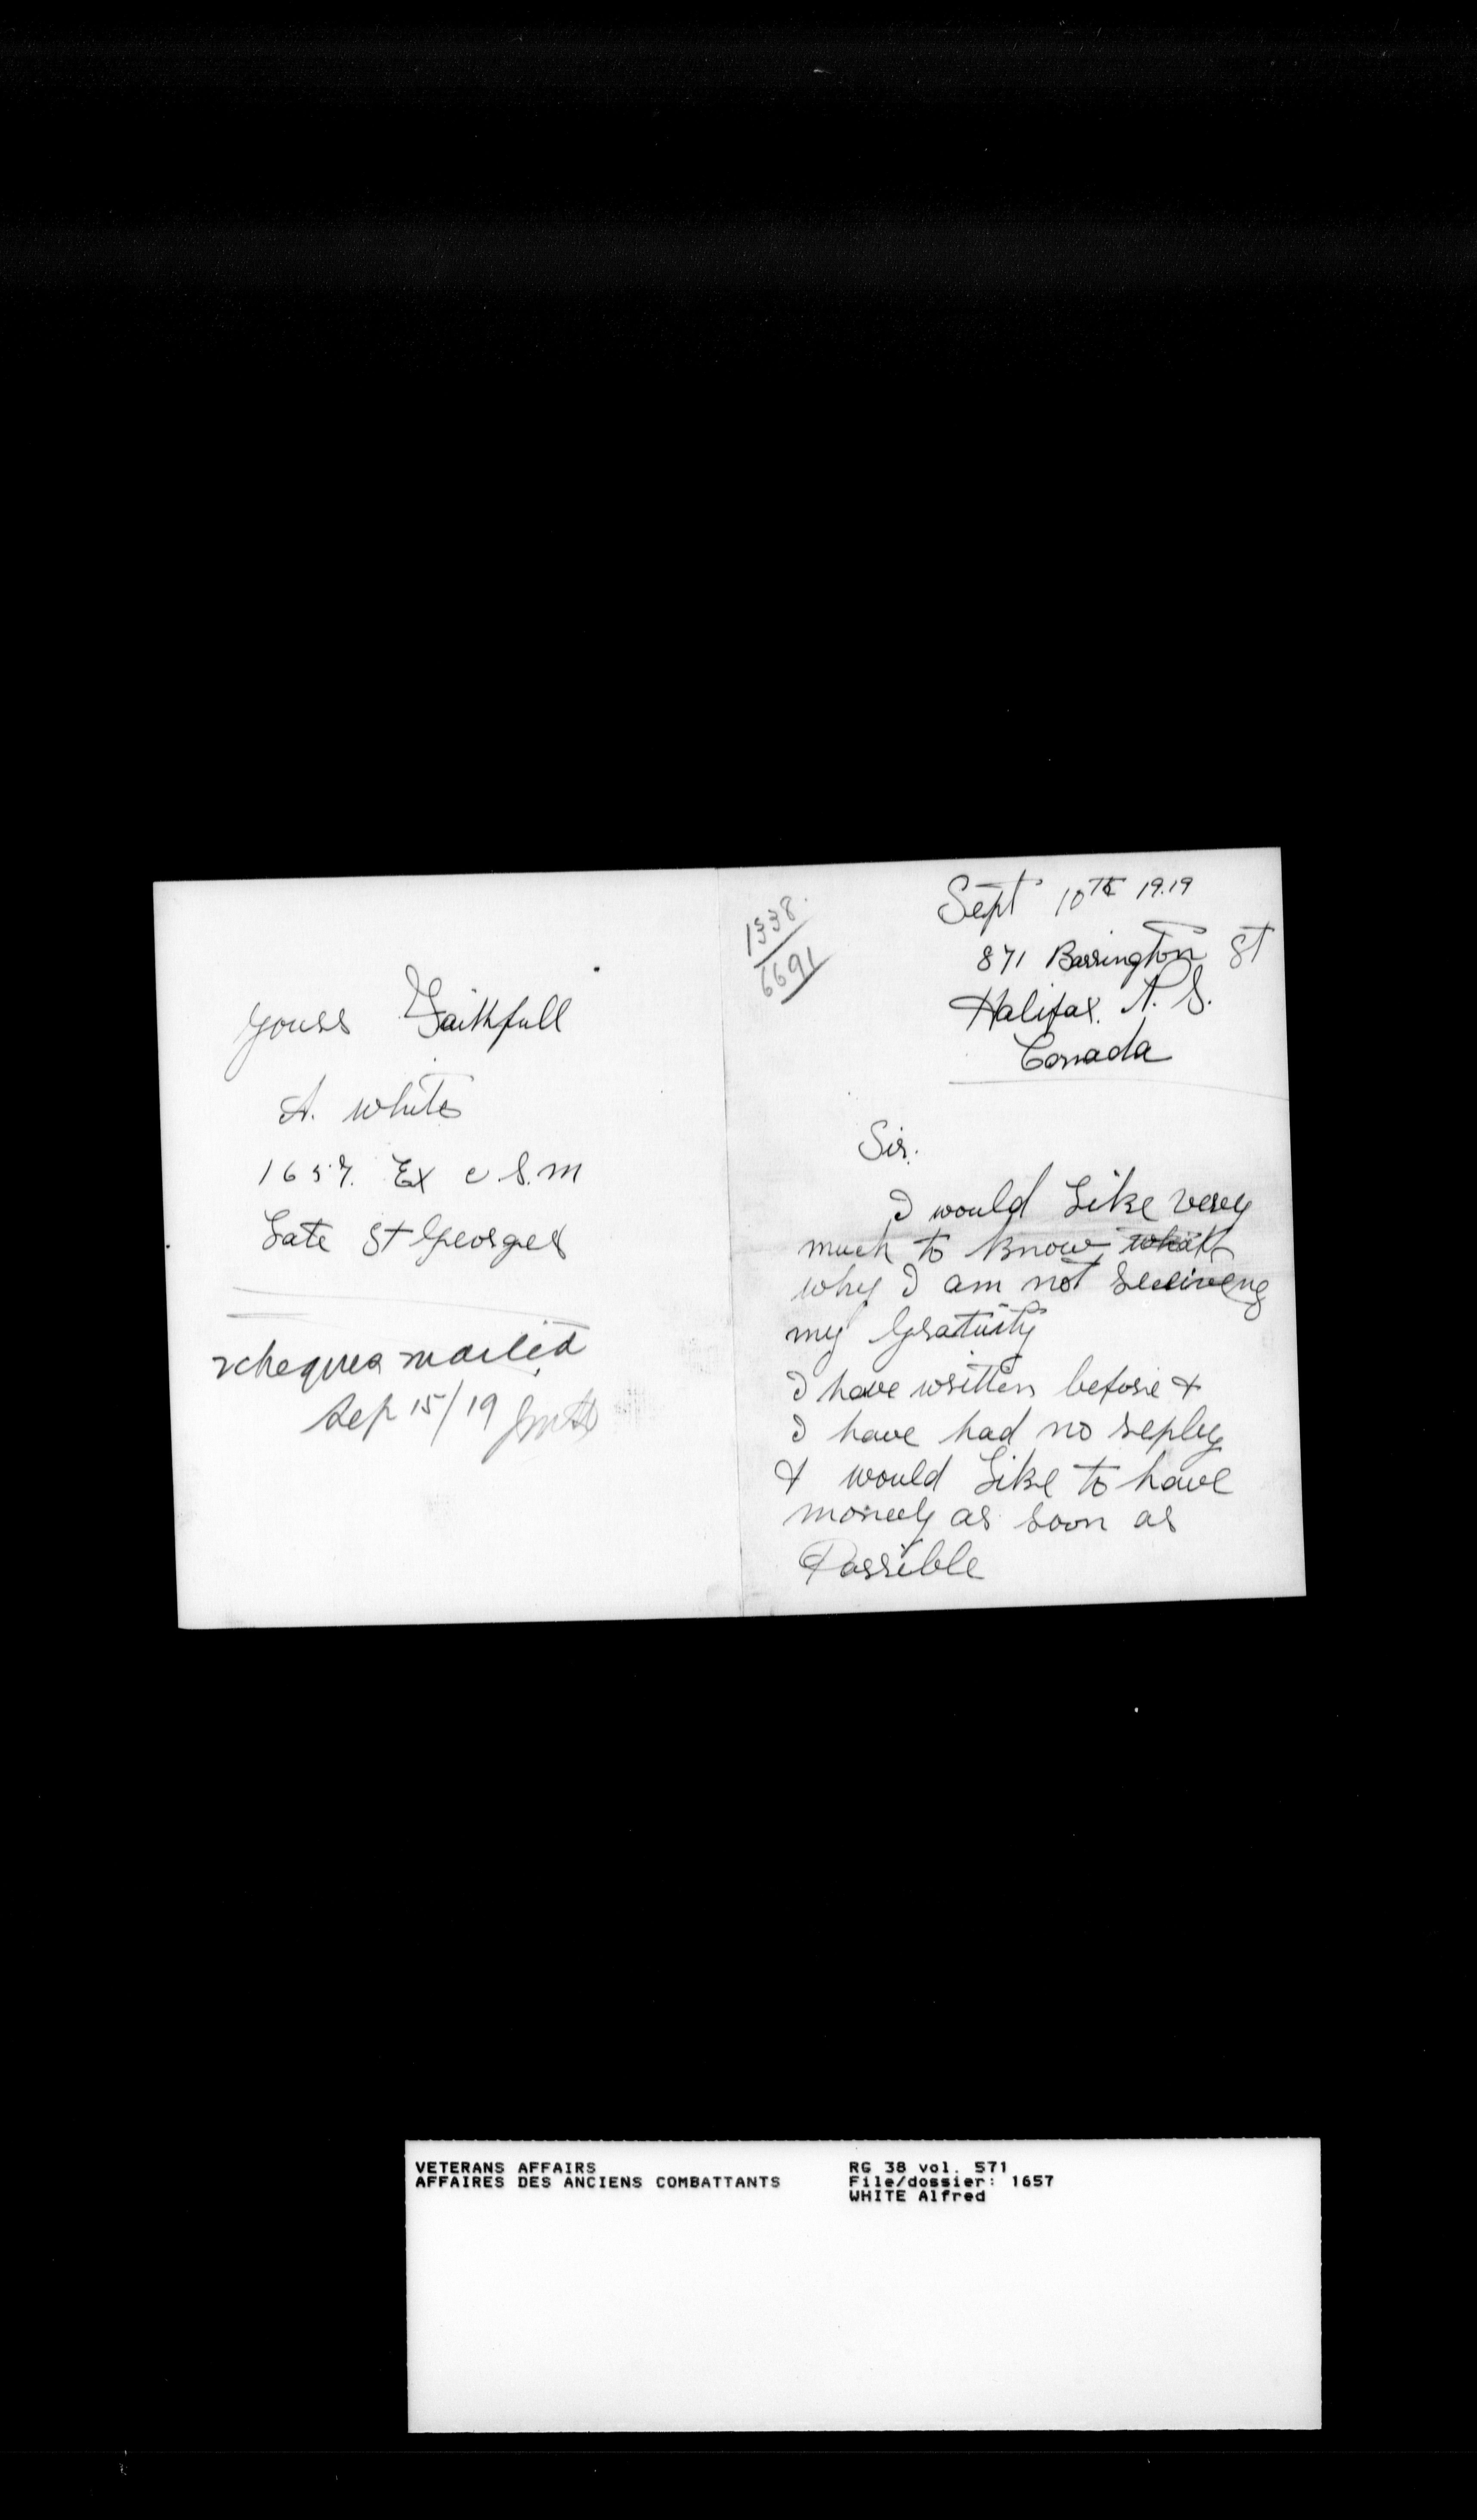 1338.
6691
Sept 10th 19.19
871 Barrington St
Halifax. N. S.
Canada
Sir.
I would Like very
much to know what
why I am not receiving
my Gratuity
I have written before &
I have had no reply
& would Like to have
money as soon as
Possible
yours Faithfull
A. White
1657. Ex C S.M
Late St Georges
cheques mailed
Sep 15/19
VETERANS AFFAIRS
AFFAIRES DES ANCIENS COMBATTANTS
RG 38 vol. 571
File/dossier: 1657
WHITE Alfred